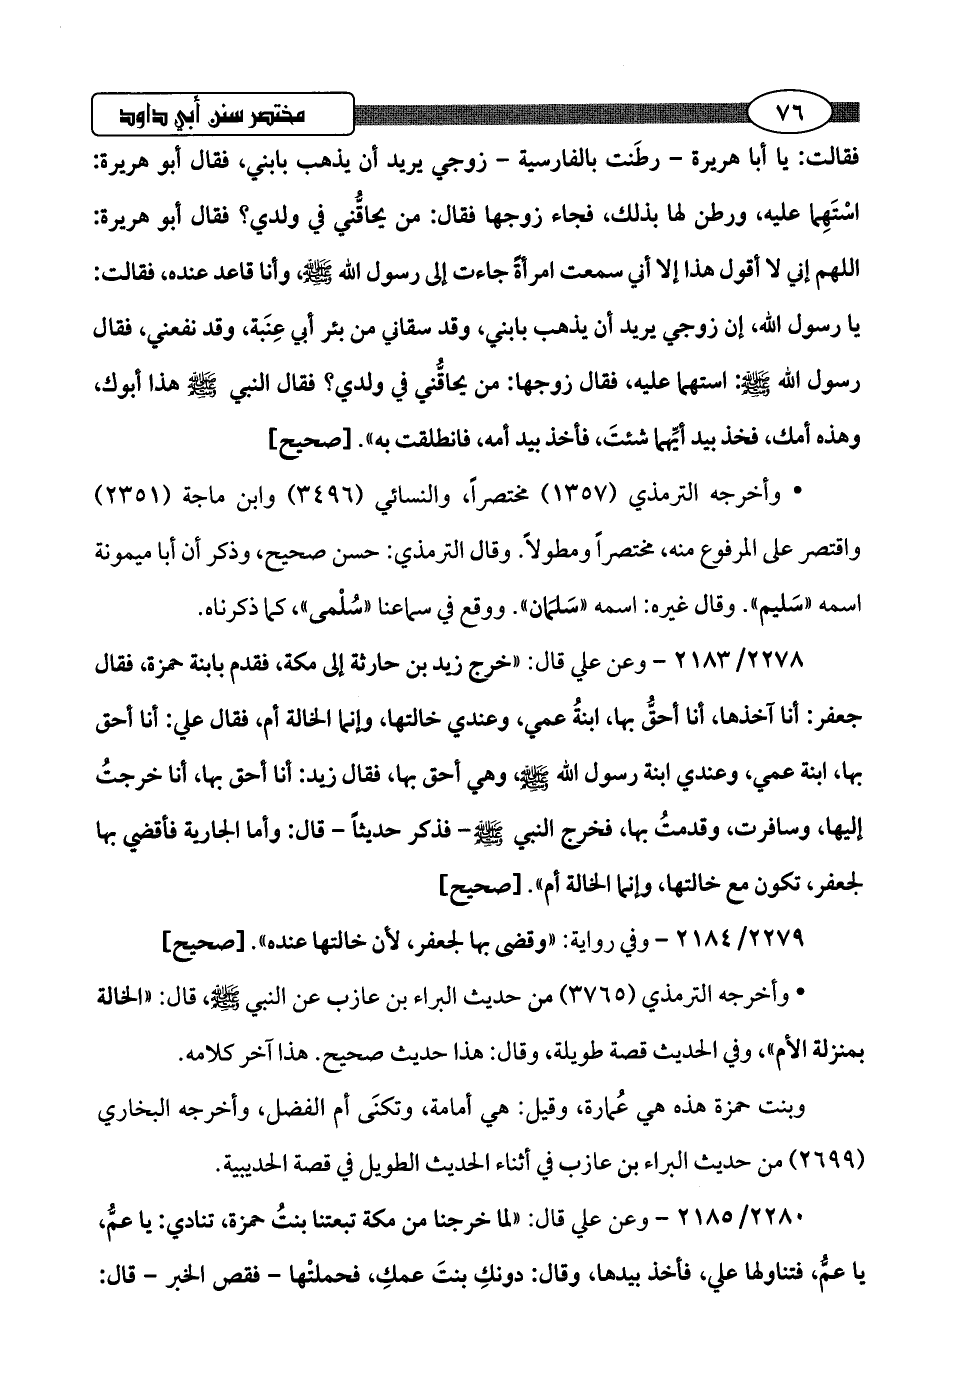 ٧٦
مختصر سنن أبي داود
فقالت: يا أبا هريرة – رطَنت بالفارسية – زوجي يريد أن يذهب بابني، فقال أبو هريرة:
اسْتَهِما عليه، ورطن لها بذلك، فجاء زوجها فقال: من يحاقُّني في ولدي؟ فقال أبو هريرة:
اللهم إني لا أقول هذا إلا أني سمعت امرأةً جاءت إلى رسول الله ﷺ، وأنا قاعد عنده، فقالت:
يا رسول الله، إن زوجي يريد أن يذهب بابني، وقد سقاني من بئر أبي عِنَبة، وقد نفعني، فقال
رسول الله ﷺ: استهما عليه، فقال زوجها: من يحاقُّني في ولدي؟ فقال النبي ﷺ هذا أبوك،
وهذه أمك، فخذ بيد أيِّهما شئتَ، فأخذ بيد أمه، فانطلقت به». [صحيح]
• وأخرجه الترمذي (١٣٥٧) مختصراً، والنسائي (٣٤٩٦) وابن ماجة (٢٣٥١)
واقتصر على المرفوع منه، مختصراً ومطولاً. وقال الترمذي: حسن صحيح، وذكر أن أبا ميمونة
اسمه «سَليم». وقال غيره: اسمه «سَلمان». ووقع في سماعنا «سُلْمى»، كما ذكرناه.
٢١٨٣/٢٢٧٨ – وعن علي قال: «خرج زيد بن حارثة إلى مكة، فقدم بابنة حمزة، فقال
جعفر: أنا آخذها، أنا أحقُّ بها، ابنةُ عمي، وعندي خالتها، وإنما الخالة أم، فقال علي: أنا أحق
بها، ابنة عمي، وعندي ابنة رسول الله ﷺ، وهي أحق بها، فقال زيد: أنا أحق بها، أنا خرجتُ
إليها، وسافرت، وقدمتُ بها، فخرج النبي ﷺ – فذكر حديثاً – قال: وأما الجارية فأقضي بها
لجعفر، تكون مع خالتها، وإنما الخالة أم». [صحيح]
٢١٨٤/٢٢٧٩ – وفي رواية: «وقضى بها لجعفر، لأن خالتها عنده». [صحيح]
• وأخرجه الترمذي (٣٧٦٥) من حديث البراء بن عازب عن النبي ﷺ، قال: «الخالة
بمنزلة الأم»، وفي الحديث قصة طويلة، وقال: هذا حديث صحيح. هذا آخر كلامه.
وبنت حمزة هذه هي عُمارة، وقيل: هي أمامة، وتكنَى أم الفضل، وأخرجه البخاري
(٢٦٩٩) من حديث البراء بن عازب في أثناء الحديث الطويل في قصة الحديبية.
٢١٨٥/٢٢٨٠ – وعن علي قال: «لما خرجنا من مكة تبعتنا بنتُ حمزة، تنادي: يا عمُّ،
يا عمُّ، فتناولها علي، فأخذ بيدها، وقال: دونكِ بنتَ عمكِ، فحملتْها – فقص الخبر – قال: